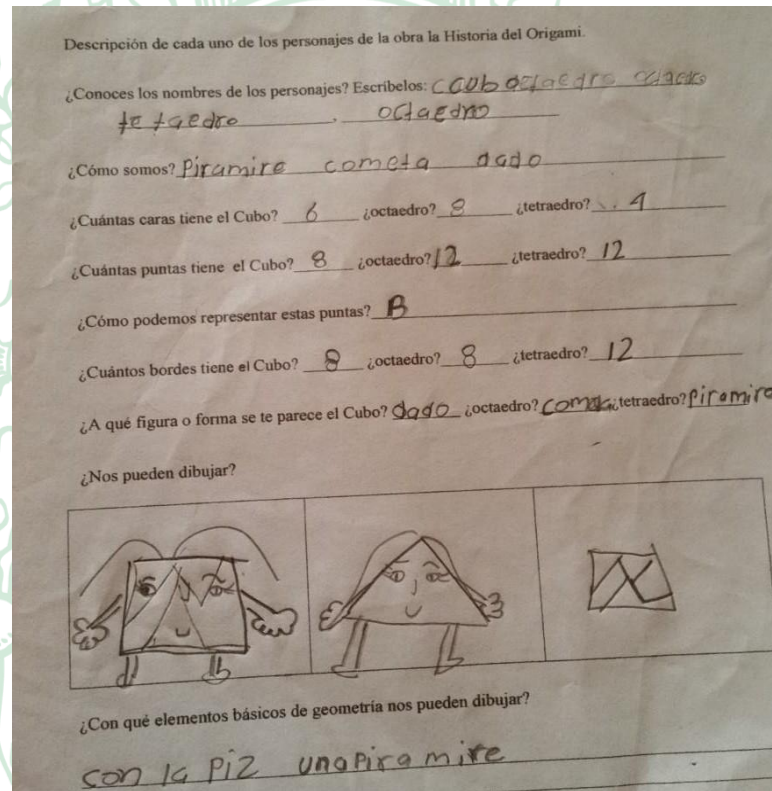 Descripción de cada uno de los personajes de la obra la Historia del Origami.
¿Conoces los nombres de los personajes? Escribelos: ccub octaedro octaedro
tetaedro . octaedro
¿Cómo somos? Piramire cometa dado
¿Cuántas caras tiene el Cubo? 6 ¿octaedro? 8 ¿tetraedro? 4
¿Cuántas puntas tiene el Cubo? 8 ¿octaedro? 12 ¿tetraedro? 12
¿Cómo podemos representar estas puntas? B
¿Cuántos bordes tiene el Cubo? 8 ¿octaedro? 8 ¿tetraedro? 12
¿A qué figura o forma se te parece el Cubo? dado ¿octaedro? ¿tetraedro? Piramire
¿Nos pueden dibujar?
¿Con qué elementos básicos de geometría nos pueden dibujar?
con la Piz una Piramire